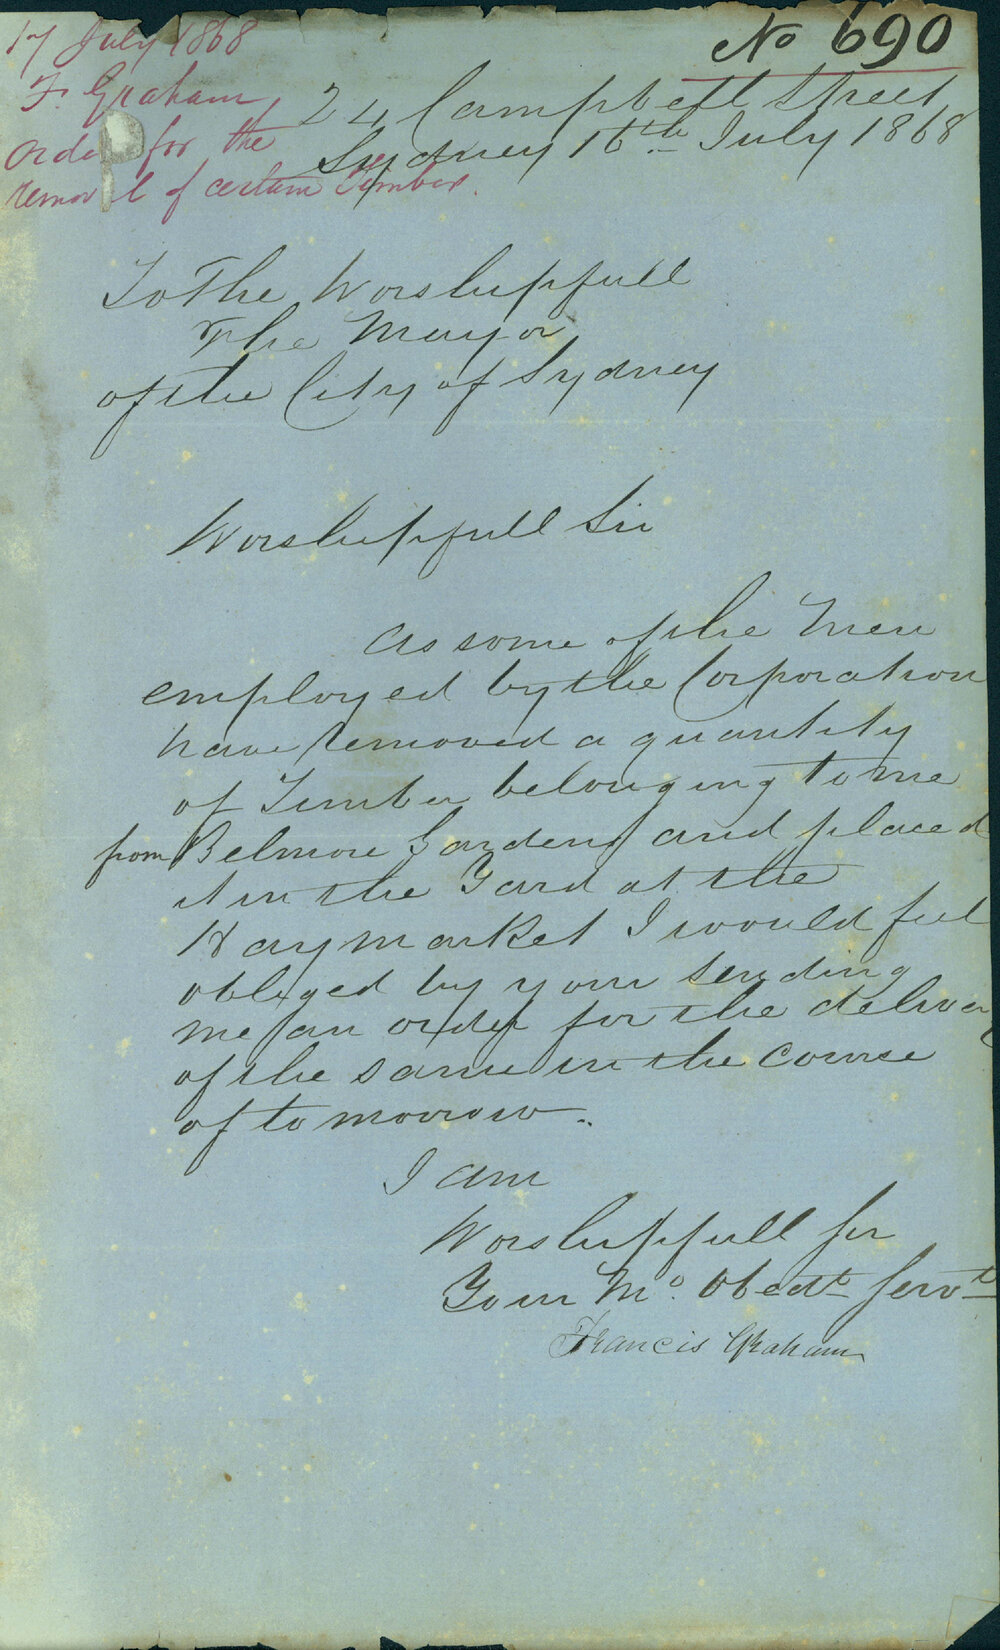 17 July 1868
F. Graham
Order for the
removal of certain timber.
No 690
24 Campbell Street
Sydney 16th July 1868
To The Worshipfull
The Mayor
of the City of Sydney
Worshipfull Sir
As some of the Men
employed by the Corporation
have removed a quantity
of Timber belonging to me
from Belmore Gardens and placed
it in the Yard at the
Haymarket I would feel
obliged by your sending
me an order for the delivery
of the same in the course
of to morrow.
I am
Worshipfull Sir
Your Mo. Obedt Servt
Francis Graham